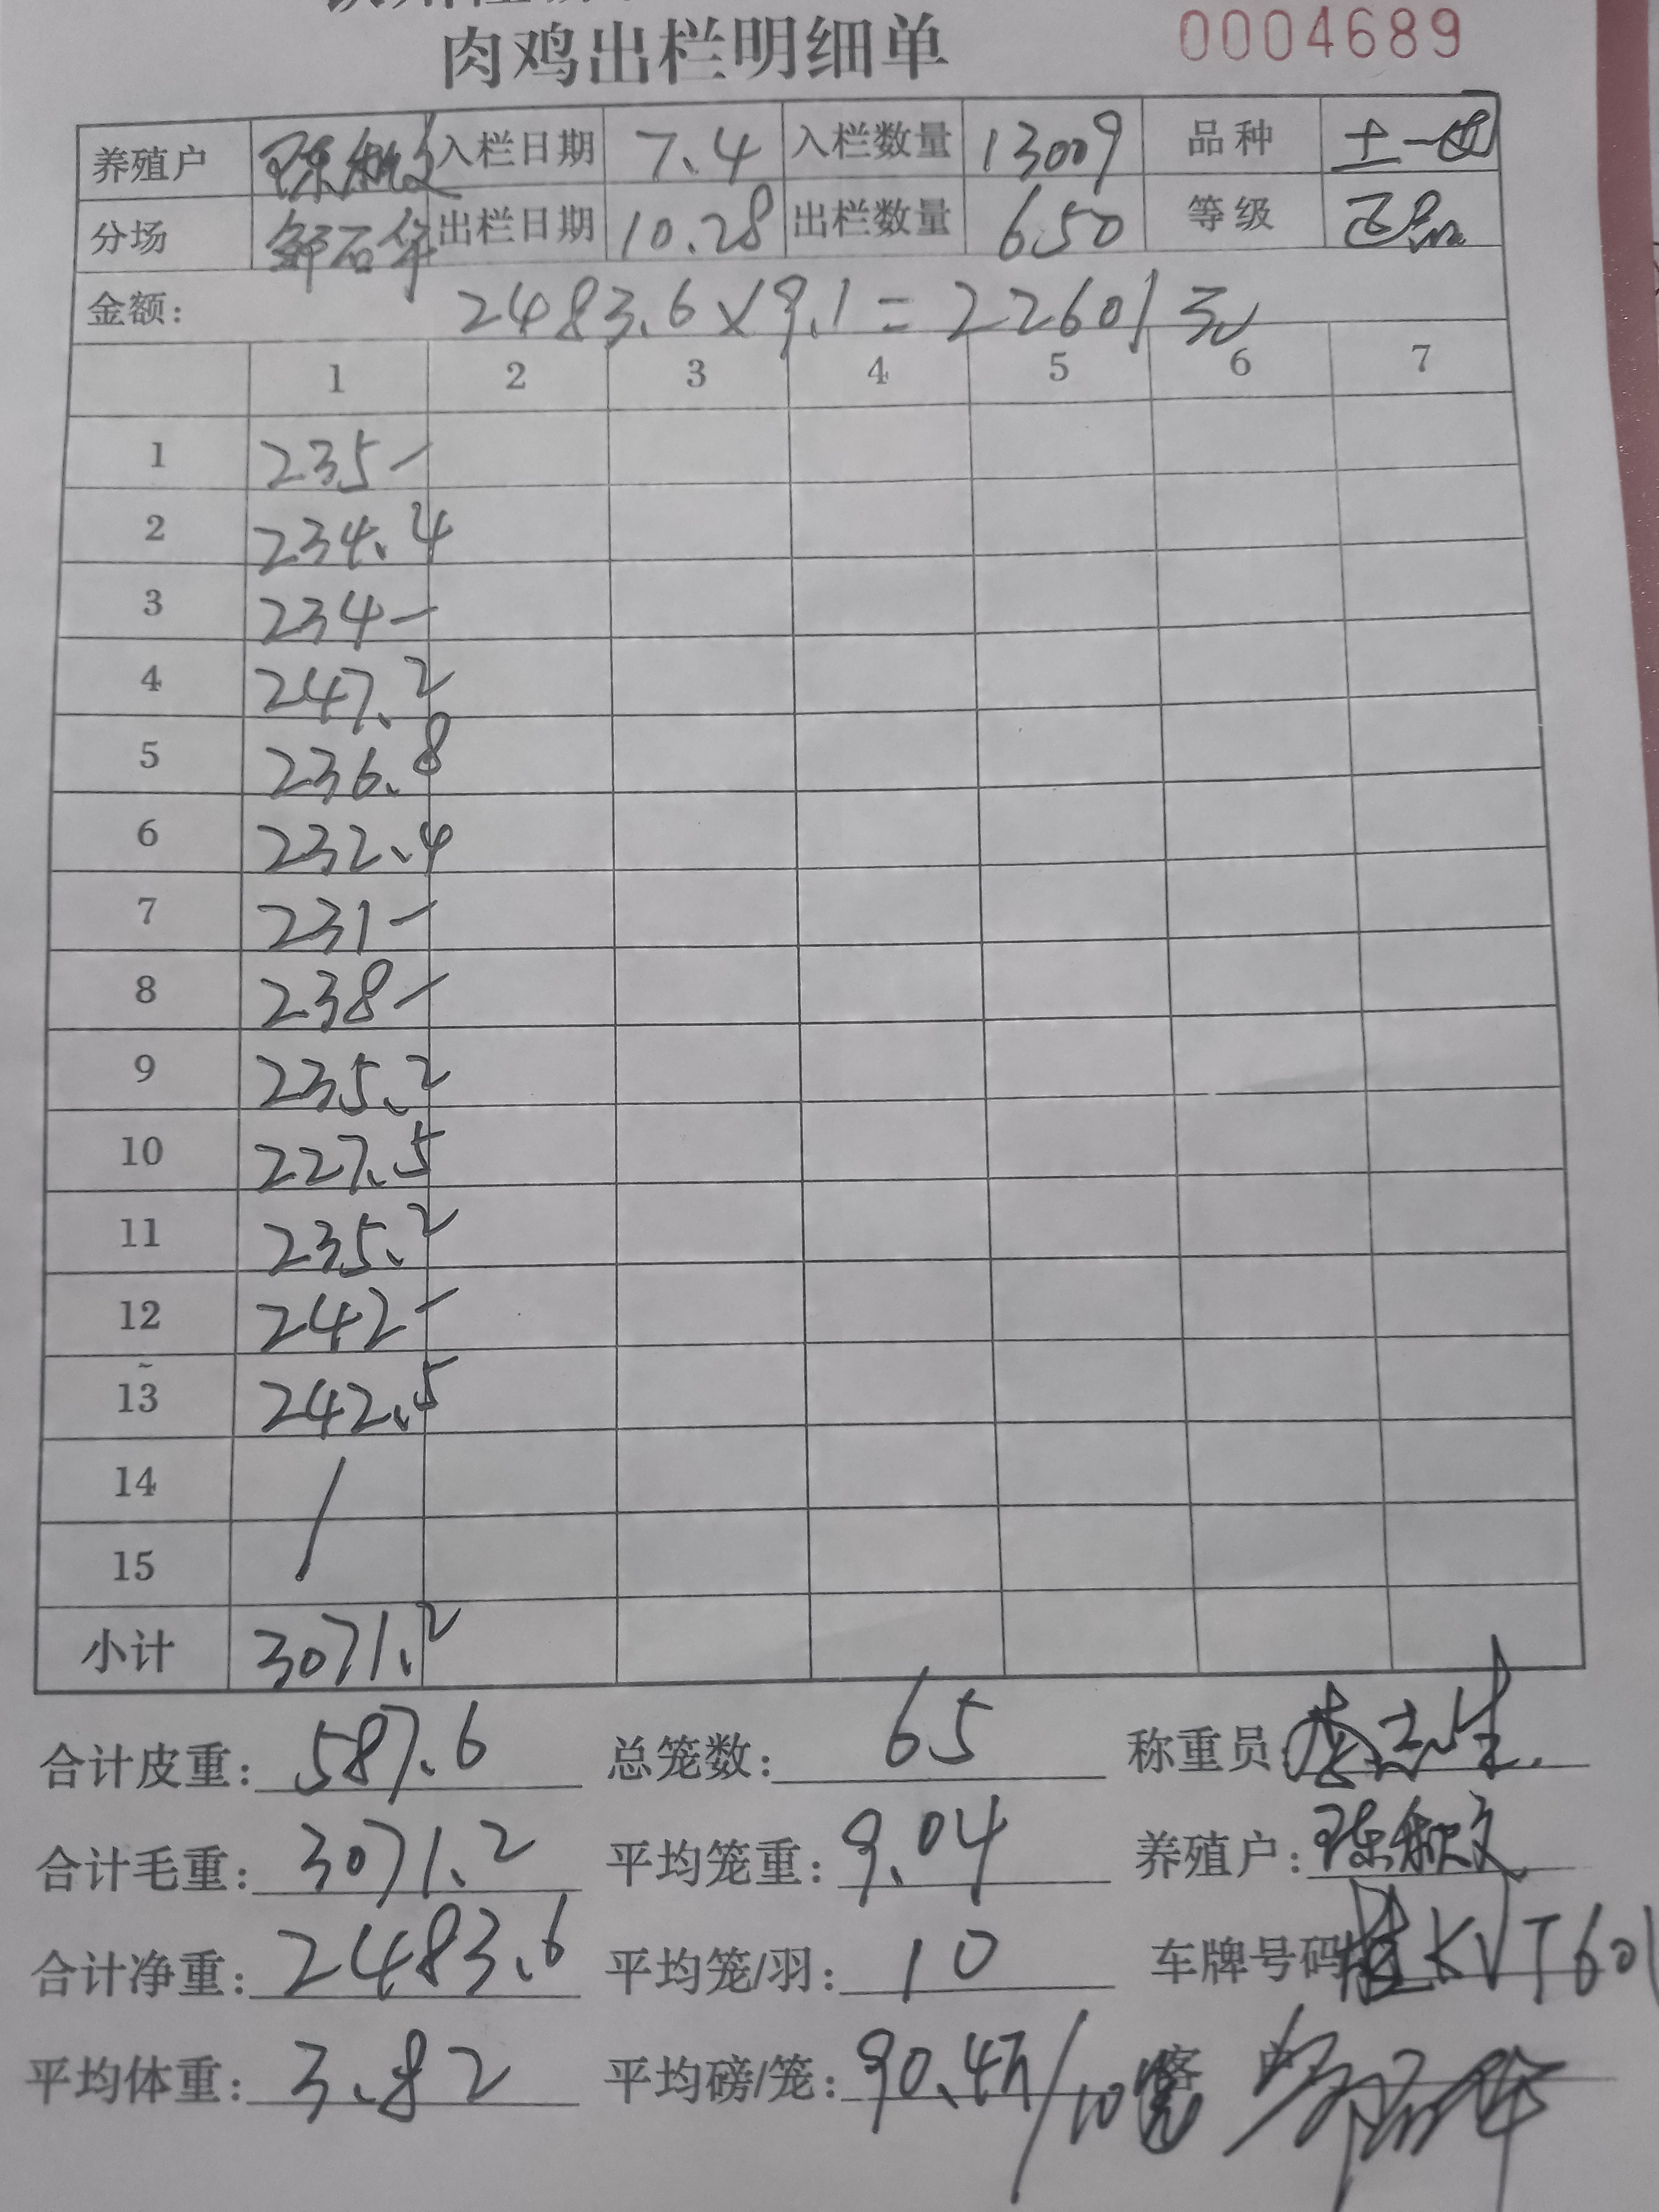 肉鸡出栏明细单 0004689
养殖户 陈献文 入栏日期 7.4 入栏数量 13009 品种 土一
分场 石华 出栏日期 10.28 出栏数量 650 等级 正品
金额: 2483.6×9.1=22601元
1 2 3 4 5 6 7
1 235-
2 234.4
3 234-
4 247.2
5 236.8
6 232.4
7 231-
8 238-
9 235.2
10 227.5
11 235.2
12 242-
13 242.5
14 /
15
小计 3071.2
合计皮重: 587.6 总笼数: 65 称重员
合计毛重: 3071.2 平均笼重: 9.04 养殖户: 陈献文
合计净重: 2483.6 平均笼/羽: 10 车牌号码 桂KVT601
平均体重: 3.82 平均磅/笼: 90.4斤/10笼